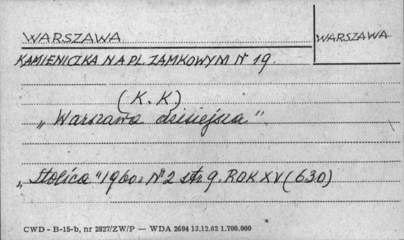 WARSZAWA
WARSZAWA
KAMIENICZKA NA PL. ZAMKOWYM Nr 19.
(K. K)
„Warszawa dzisiejsza".
„Stolica" 1960. Nr 2 str. 9. ROK XV (630)
CWD - B-15-b, nr 2827/ZW/P — WDA 2694 13.12.62 1.700.000